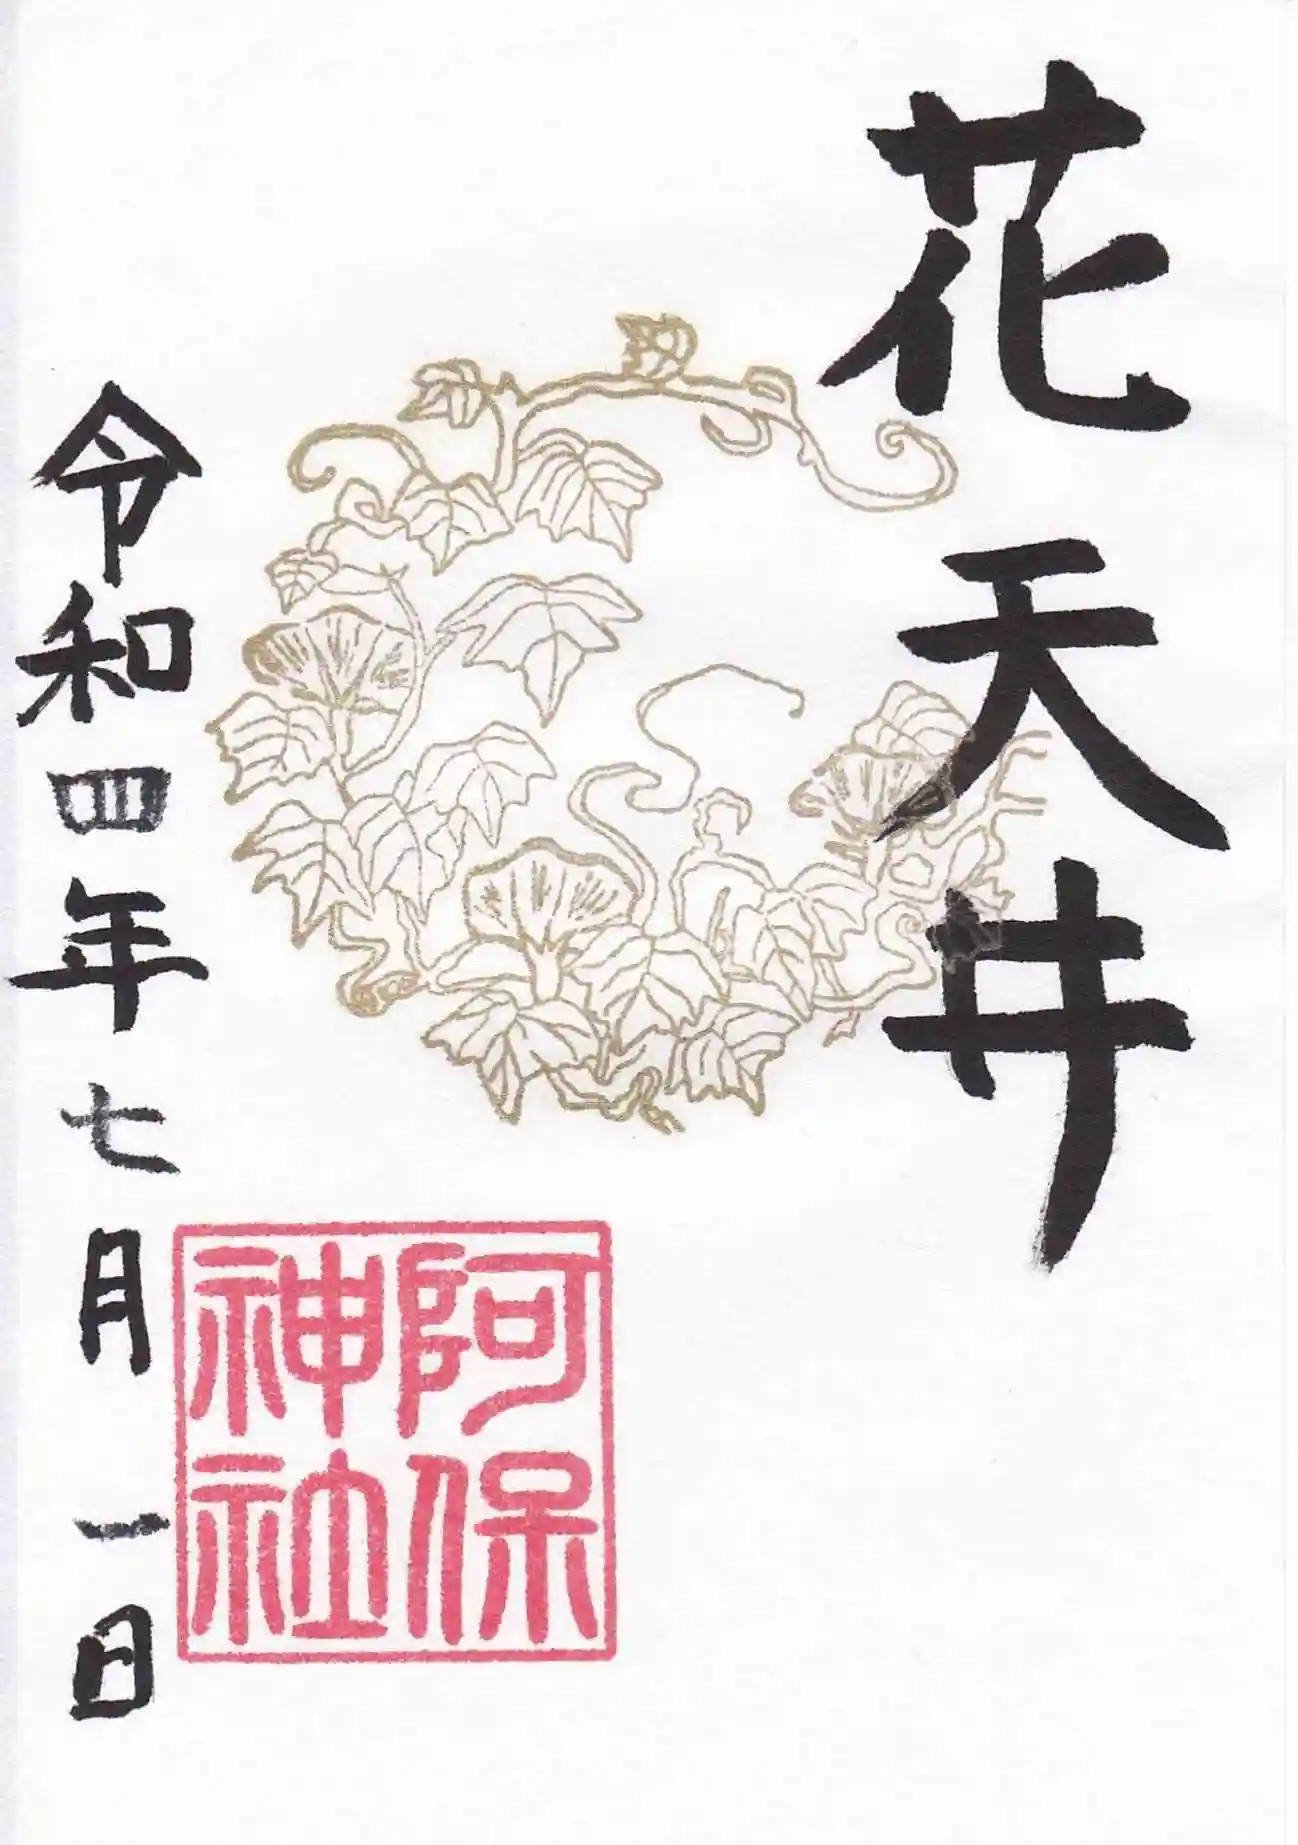 花天井
阿保
神社
令和四年七月一日